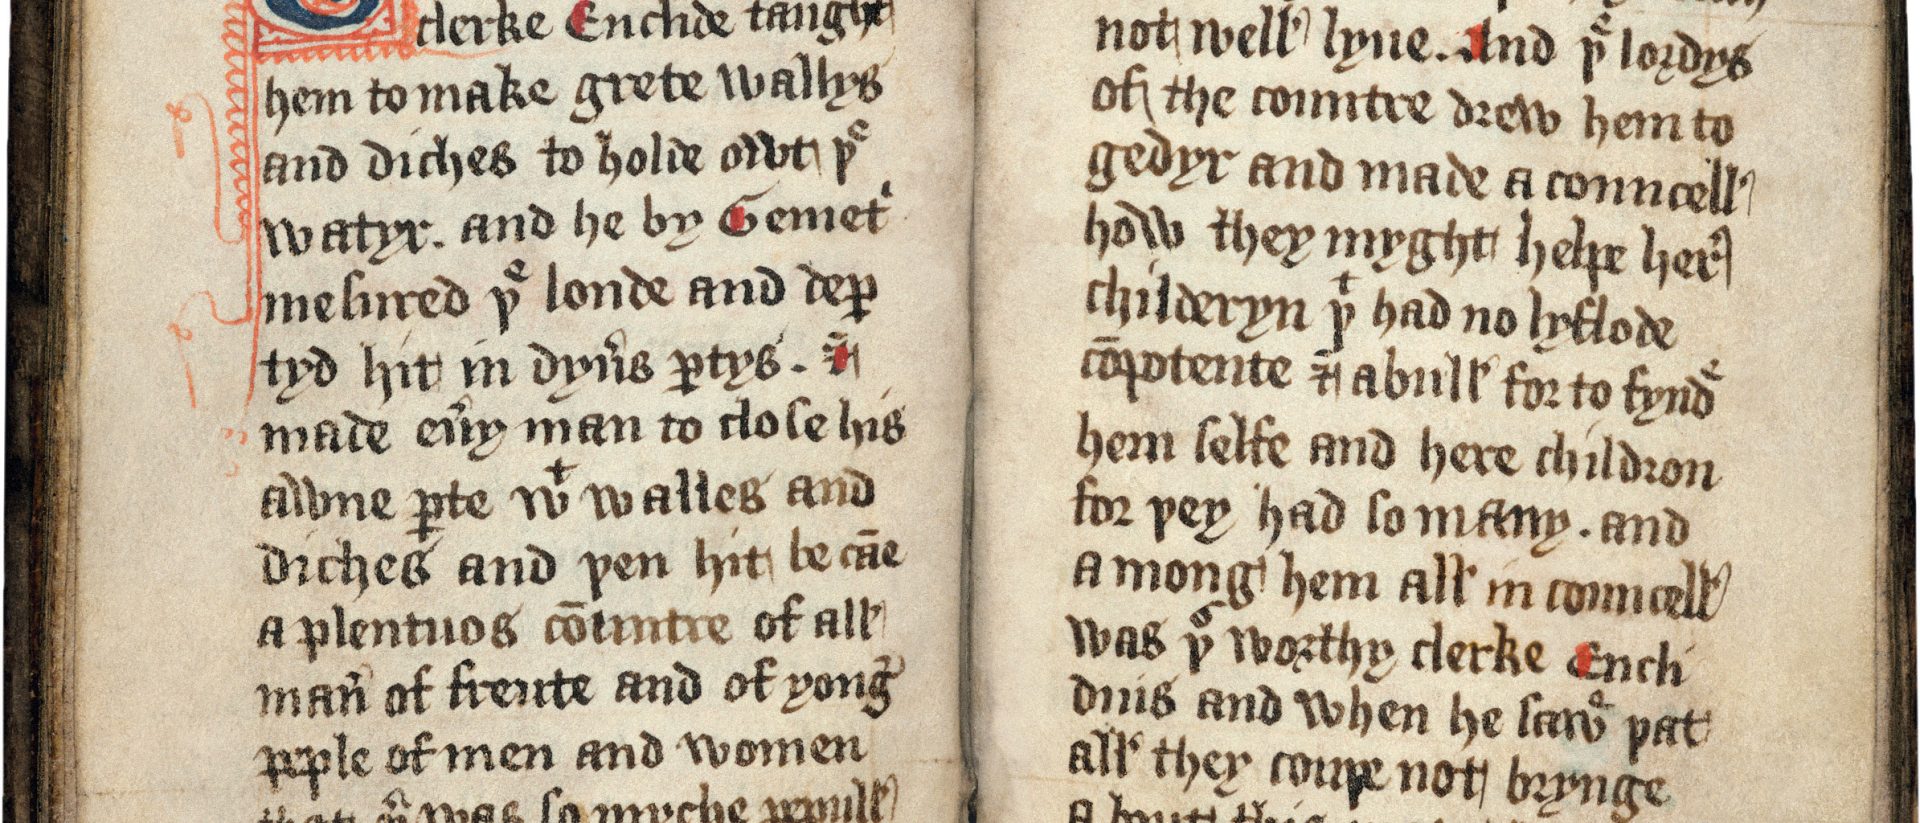 clerke Euclide taught
hem to make grete wallys
and diches to holde owt þᵉ
watyr. and he by Gemetʳ
mesured þᵉ londe and deꝑ
tyd hit in dyũs ꝑtys. &
made eũy man to close his
awne ꝑte wᵗ walles and
diches and þen hit be cāe
a plentuos cōuntre of all
mañ of freute and of yong
peple of men and women
that þᵉ was so myche pepull
not well lyue. And þᵉ lordys
of the countre drew hem to
gedyr and made a councell
how they myght helpe her
childeryn þᵗ had no lyflode
cōpotente & abull for to fyndᵉ
hem selfe and here children
for þey had so many. and
a mong hem all in councell
was þⁱˢ worthy clerke Encli
dnis and when he sawᵉ þat
all they coupe not brynge
a bout this